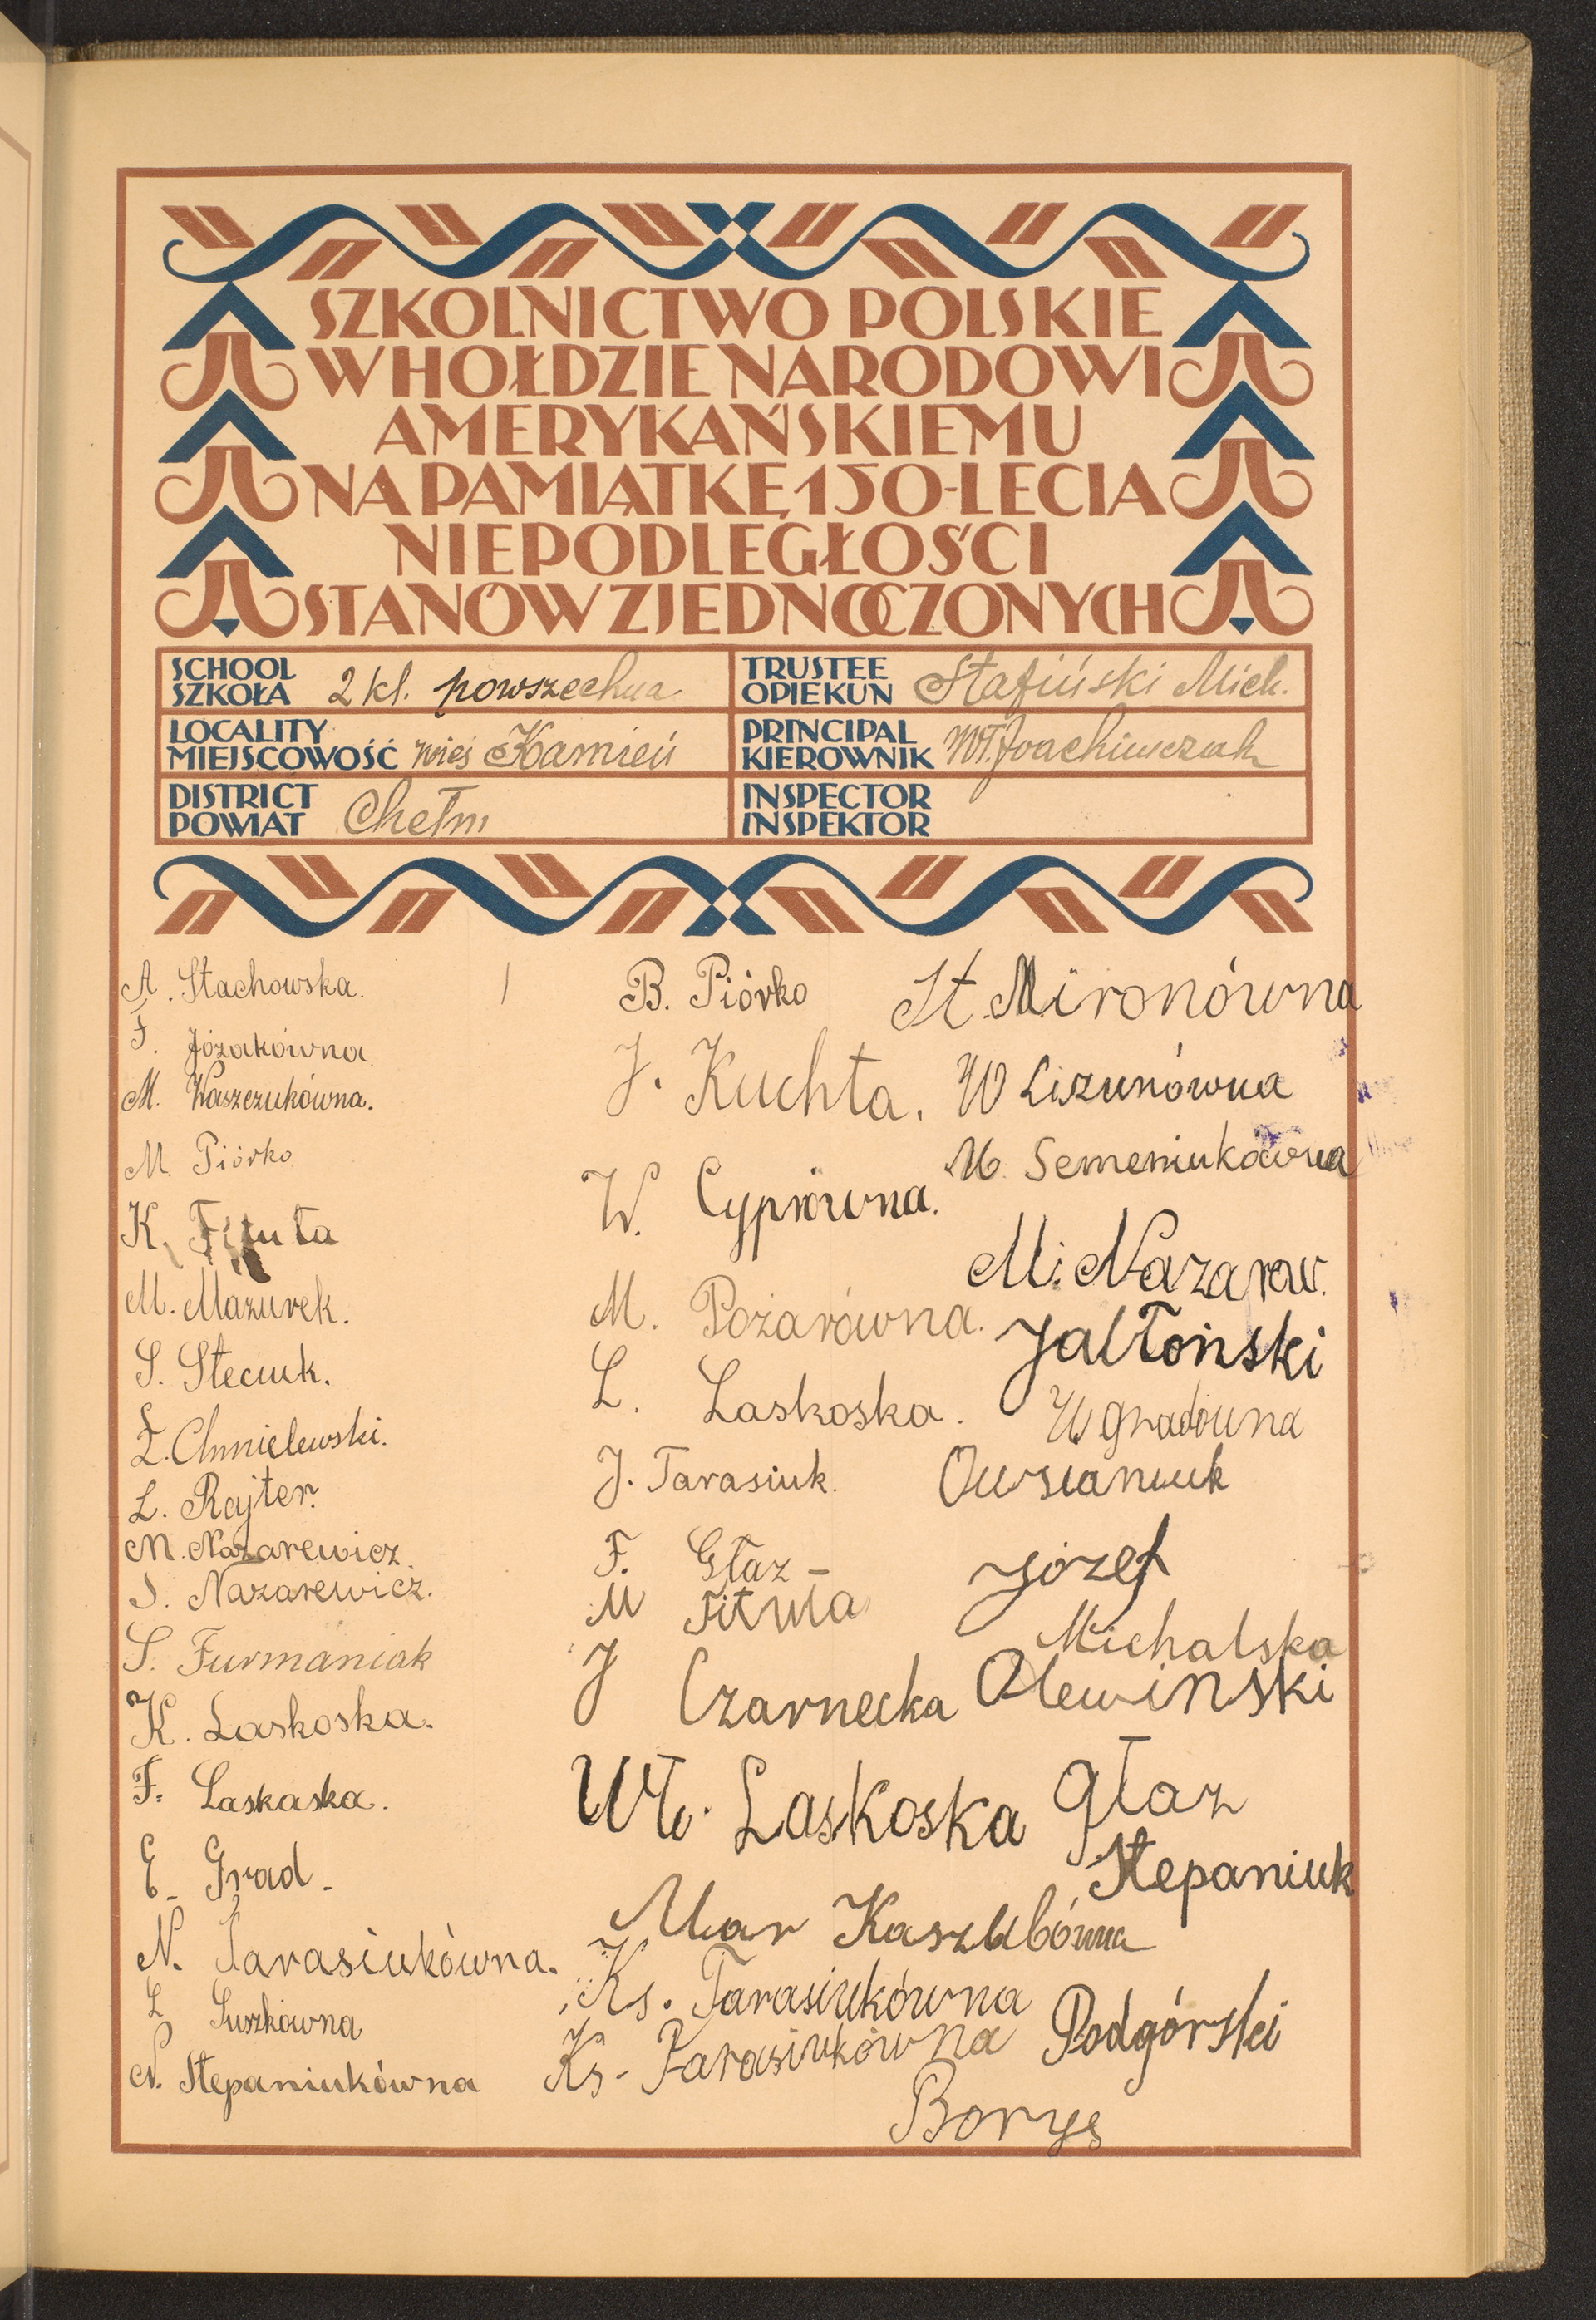 SZKOLNICTWO POLSKIE
W HOŁDZIE NARODOWI
AMERYKAŃSKIEMU
NA PAMIĄTKĘ 150-LECIA
NIEPODLEGŁOŚCI
STANÓW ZJEDNOCZONYCH
SCHOOL
SZKOŁA 2 kl. powszechna
TRUSTEE
OPIEKUN Stafiński Mich.
LOCALITY
MIEJSCOWOŚĆ wieś Kamień
PRINCIPAL
KIEROWNIK Wł. Joachimczak
DISTRICT
POWIAT Chełm
INSPECTOR
INSPEKTOR
A. Stachowska.
F. Józakówna
M. Waszczukówna.
M. Piórko
K. Fituła
M. Mazurek.
S. Steciuk.
Z. Chmielewski.
L. Rajter.
M. Nazarewicz.
J. Nazarewicz.
S. Furmaniak
K. Laskoska.
F. Laskaska.
E. Grad.
N. Tarasiukówna.
L Suszkówna
N. Stepaniukówna
B. Piórko
J. Kuchta.
W. Cyprówna.
M. Pożarówna.
L. Laskoska.
J. Tarasiuk.
F. Głaz
M Fituła
J Czarnecka
Wł. Laskoska
Mar Kaszubówna
Ks. Tarasiukówna
Ks. Tarasiukówna
St. Mironówna
W Lizunówna
M. Semeniukówna
M. Nazarow.
Jabłoński
W Gradówna
Owsianiuk
Józef
Michalska
Olewinski
Głaz
Stepaniuk
Podgórski
Borys